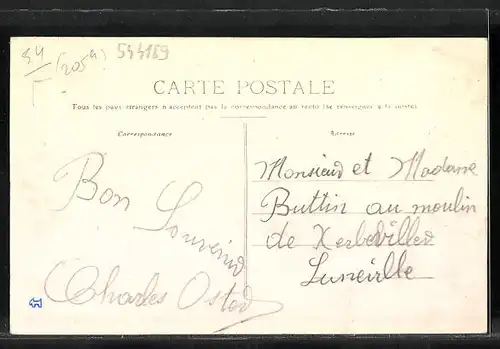 54
(205a)
544189
CARTE POSTALE
Tous les pays étrangers n'acceptent pas la correspondance au recto (Se renseigner à la poste)
Correspondance
Adresse
Monsieur et Madame
Buttin au moulin
de Xerbeviller
Luneville
Bon
Souvenir
Charles